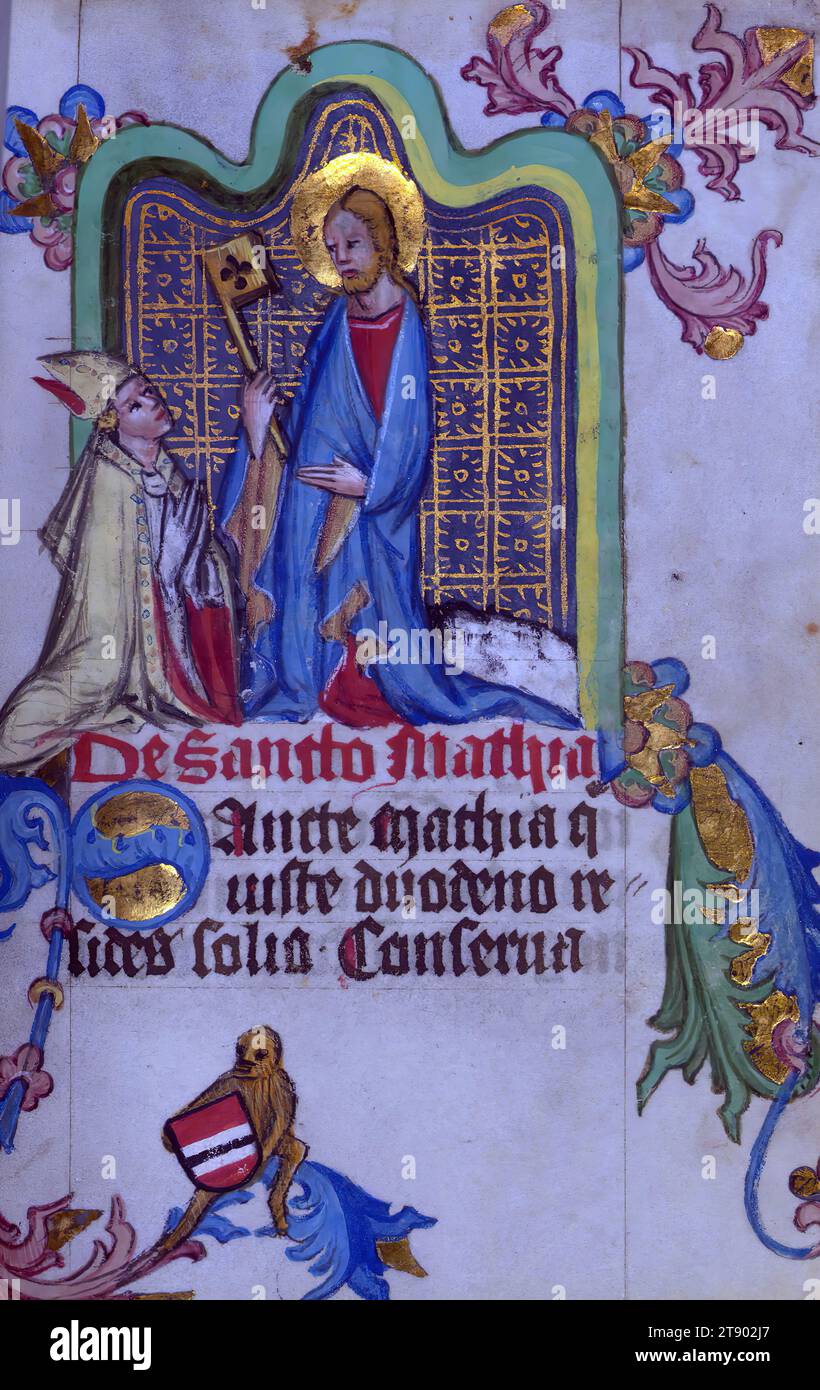 De Sancto Mathia
SAncte Mathia q
uiste duodeno re
sides solio · Conserua
alamy
Image ID: 2T902J7
www.alamy.com